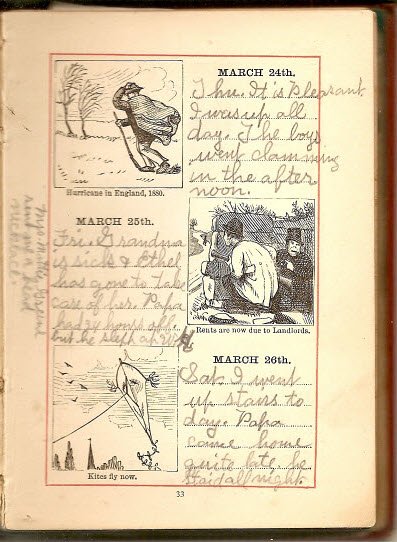 MARCH 24th.
Thu. It is Pleasant
I was up all
day. The boys
went clamming
in the after
noon.
Hurricane in England, 1880.
MARCH 25th.
Fri. Grandma
is sick & Ethel
has gone to take
care of her. Papa
hours off.
but he
Rents are now due to Landlords.
MARCH 26th.
Sat. I went
up stairs to
day. Papa
came home
quite late he
staid all night.
Kites fly now.
33